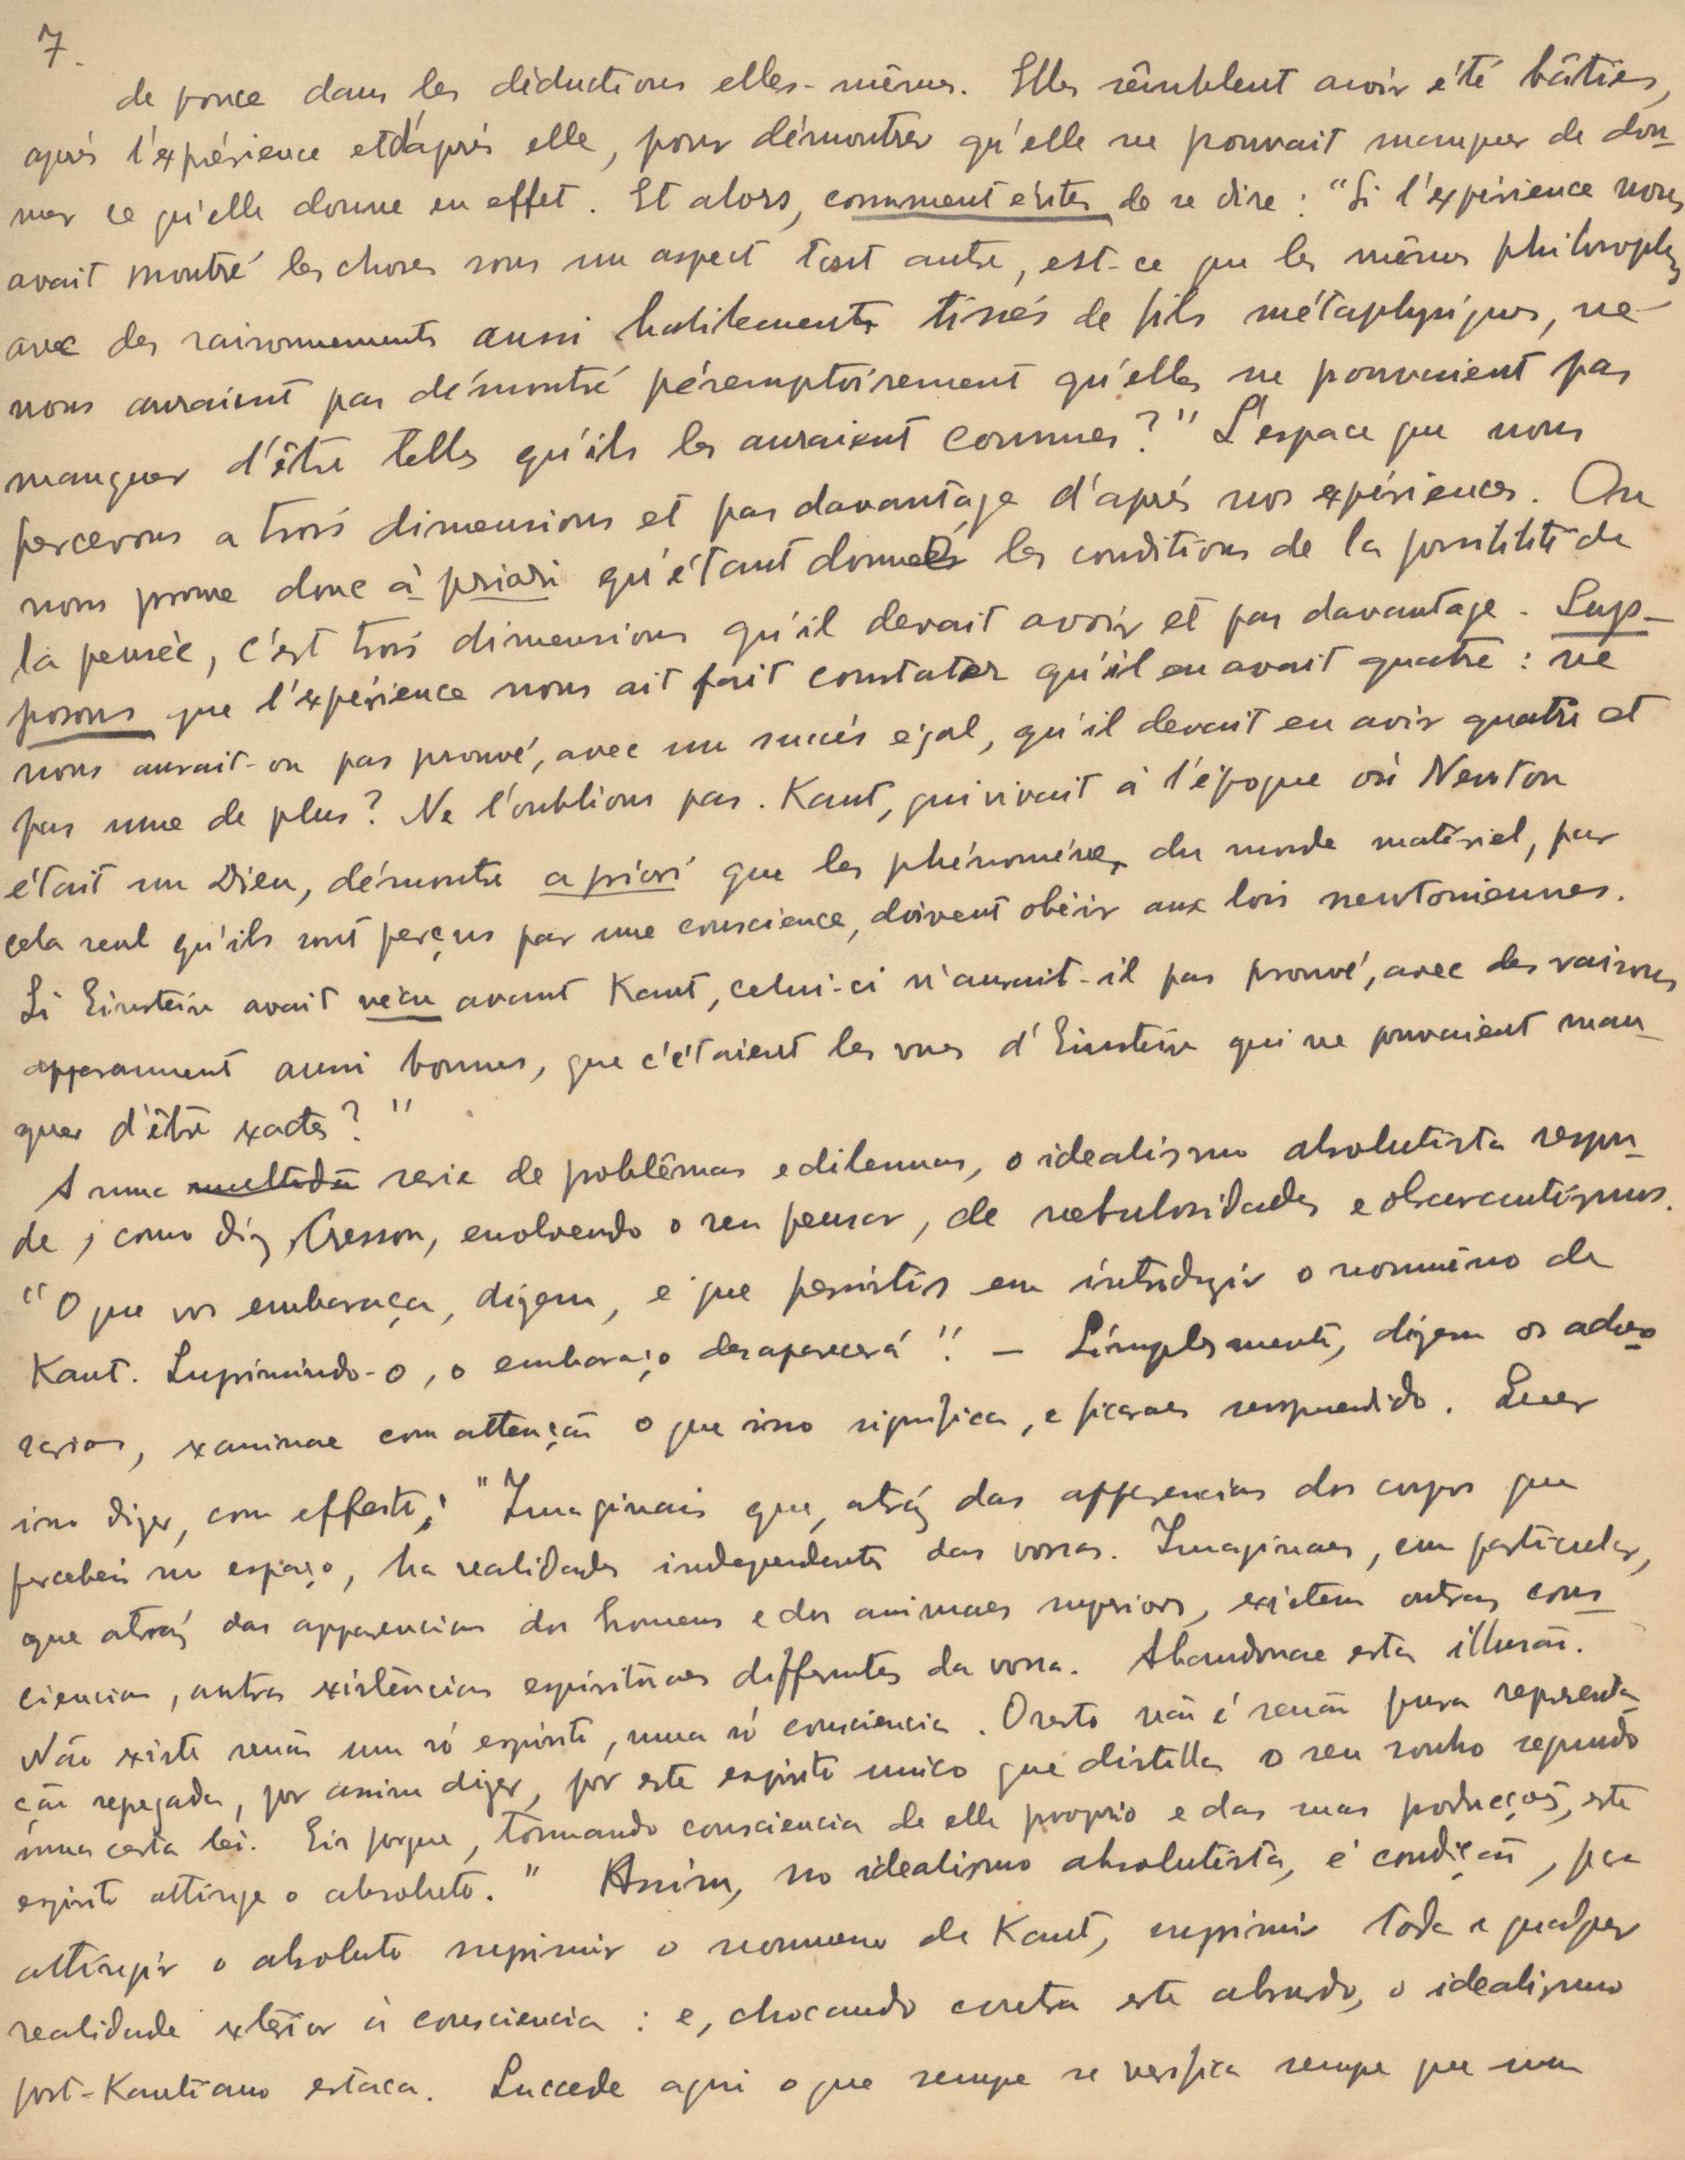 7.
de pouce dans les déductions elles-mêmes. Elles sêmblent avoir été bâties,
après l'expérience et d'après elle, pour démontrer qu'elle ne pouvait manquer de don-
ner ce qu'elle donne en effet. Et alors, comment éviter de se dire : "Si l'expérience nous
avait montré les choses sous un aspect tout autre, est-ce que les mêmes philosophes
avec des raisonnements aussi habilements tissés de fils métaphysiques, ne
nous auraient pas démontré péremptoirement qu'elles ne pouvaient pas
manquer d'être telles qu'ils les auraient connues?" L'espace que nous
percevons a trois dimensions et pas davantage d'après nos expériences. On
nous prouve donc à priori qu'étant données les conditions de la possibilité de
la pensée, c'est trois dimensions qu'il devait avoir et pas davantage. Sup-
posons que l'expérience nous ait fait constater qu'il en avait quatre : ne
nous aurait-on pas prouvé, avec un succés égal, qu'il devait en avoir quatre et
pas une de plus? Ne l'oublions pas. Kant, qui vivait à l'époque où Newton
était un Dieu, démontre a priori que les phénomènes du monde matériel, par
cela seul qu'ils sont perçus par une conscience, doivent obéir aux lois newtoniennes.
Si Einstein avait vécu avant Kant, celui-ci n'aurait-il pas prouvé, avec des raisons
apparamment aussi bonnes, que c'étaient les vues d'Einstein qui ne pouvaient man-
quer d'être exactes?"
A uma multidão serie de problêmas e dilemas, o idealismo absolutista respon-
de, como diz Cresson, envolvendo o seu pensar, de nebulosidades e obscurantismos.
"O que vos embaraça, dizem, é que persistis em introduzir o noumêno de
Kant. Suprimindo-o, o embaraço desaparecerá". - Simplesmente, dizem os adver-
sarios, examinae com attenção o que isso significa, e ficareis surpreendido. Quer
isso dizer, com effeito: "Imaginais que, atráz das apparencias dos corpos que
percebeis no espaço, ha realidades independentes das vossas. Imaginaes, em particular,
que atráz das apparencias dos homens e dos animaes superiores, existem outras cons-
ciencias, outras existências espirituaes differentes da vossa. Abandonae esta illusão.
Não existe senão um só espirito, uma só consciencia. O resto não é senão pura representa-
ção segregada, por assim dizer, por este espirito unico que distilla o seu sonho segundo
uma certa lei. Eis porque, tomando consciencia de elle proprio e das suas producções, este
espirito attinge o absoluto." Assim, no idealismo absolutista, é condição, para
attingir o absoluto suprimir o noumeno de Kant, suprimir toda e qualquer
realidade exterior á consciencia : e, chocando contra este absurdo, o idealismo
post-Kantiano estaca. Succede aqui o que sempre se verifica sempre que um